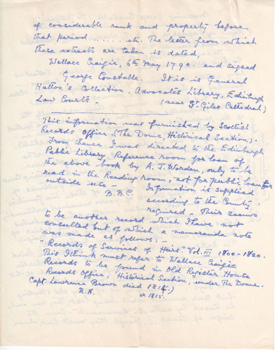 of considerable rank and property before
that period ..... etc. The letter from which
these extracts are taken is dated,
Wallace Craigie, 6th May 1790. and signed
George Constable. It is in General
Hutton's Collection. Advocates Library, Edinburgh
Law Courts. (near St. Giles Cathedral)
This information was furnished by Scottish
Records Office (The Dome, Historical Section).
From there I was directed to the Edinburgh
Public Library, Reference room for loan of
the above book by A.J. Warden, only to be
read in the Reading room, not for Public Loan for
outside use - Information is supplied
B.B.C. according to the County
required - There seems
to be another record which I have not
consulted but of which a memorandum note
was made as follows:-
"Records of Services of Heirs" Vol. III 1800-1820.
This I think must refer to Wallace Craigie
Records to be found in Old Register House
Record Office, Historical Section, under the Dome.
Capt Lawrence Brown died 1814
or 1815.